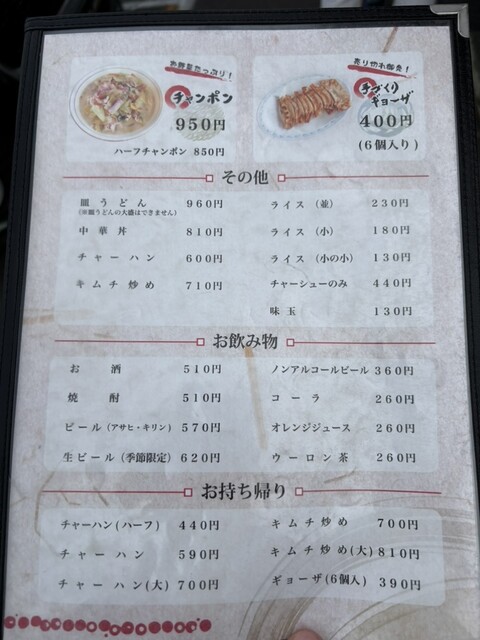 お野菜たっぷり!
チャンポン
950円
ハーフチャンポン 850円
売り切れ御免!
手づくり
ギョーザ
400円
(6個入り)
その他
皿うどん 960円
(※皿うどんの大盛はできません)
中華丼 810円
チャーハン 600円
キムチ炒め 710円
ライス(並) 230円
ライス(小) 180円
ライス(小の小) 130円
チャーシューのみ 440円
味玉 130円
お飲み物
お酒 510円
焼酎 510円
ビール(アサヒ・キリン) 570円
生ビール(季節限定) 620円
ノンアルコールビール 360円
コーラ 260円
オレンジジュース 260円
ウーロン茶 260円
お持ち帰り
チャーハン(ハーフ) 440円
チャーハン 590円
チャーハン(大) 700円
キムチ炒め 700円
キムチ炒め(大) 810円
ギョーザ(6個入) 390円